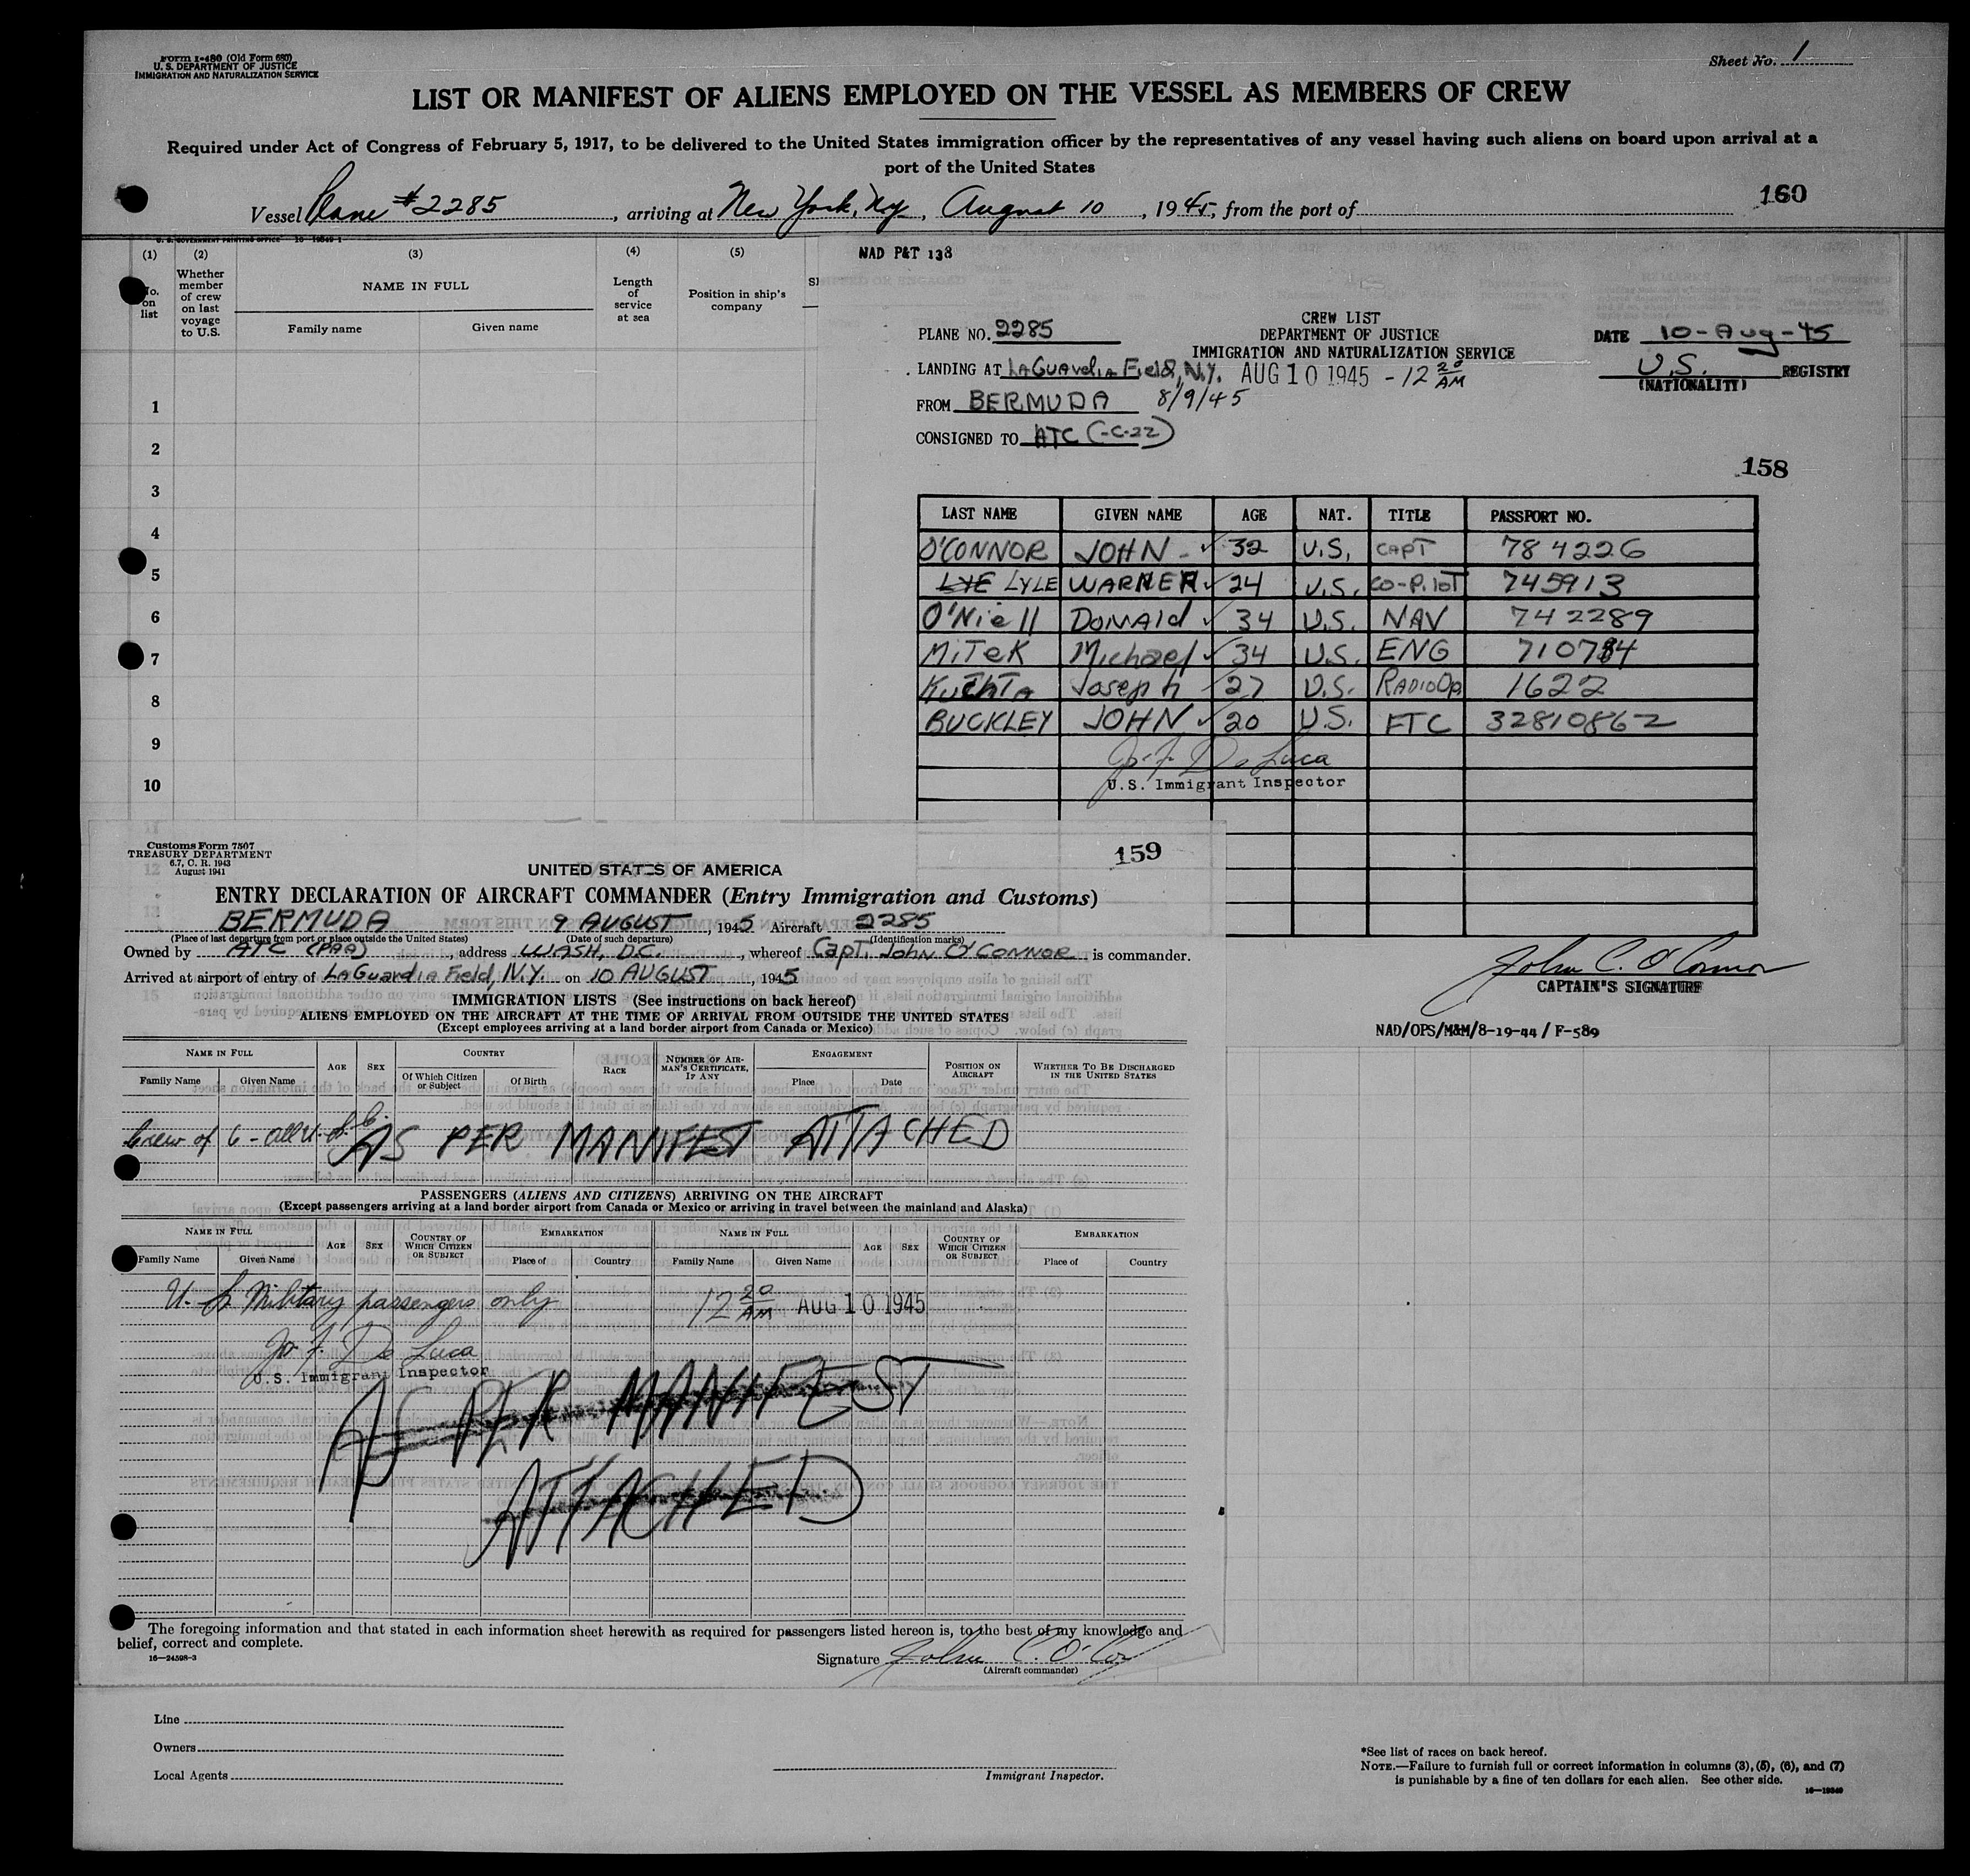 Form I-480 (Old Form 680)
U. S. DEPARTMENT OF JUSTICE
IMMIGRATION AND NATURALIZATION SERVICE
Sheet No. 1
LIST OR MANIFEST OF ALIENS EMPLOYED ON THE VESSEL AS MEMBERS OF CREW
Required under Act of Congress of February 5, 1917, to be delivered to the United States immigration officer by the representatives of any vessel having such aliens on board upon arrival at a
port of the United States
160
Vessel Plane #2285, arriving at New York, N.Y., August 10, 1945, from the port of
(1) (2) (3) (4) (5)
No. on list
Whether member of crew on last voyage to U.S.
NAME IN FULL
Family name Given name
Length of service at sea
Position in ship's company
1
2
3
4
5
6
7
8
9
10
NAD P&T 138
CREW LIST
PLANE NO. 2285 DEPARTMENT OF JUSTICE DATE 10-Aug-45
IMMIGRATION AND NATURALIZATION SERVICE
LANDING AT LaGuardia Field, N.Y. AUG 10 1945 - 12 20 AM U.S. REGISTRY
(NATIONALITY)
FROM BERMUDA 8/9/45
CONSIGNED TO ATC (-C-22)
158
LAST NAME GIVEN NAME AGE NAT. TITLE PASSPORT NO.
O'CONNOR JOHN - ✓ 32 U.S. CAPT 784226
LYE LYLE WARNER ✓ 24 U.S. CO-PiloT 745913
O'Niell DONAld ✓ 34 U.S. NAV 742289
MiTeK Michael ✓ 34 U.S. ENG 710784
KuchTa Joseph ✓ 27 U.S. RADIO Op 1622
BUCKLEY JOHN ✓ 20 U.S. FTC 32810862
Jo. F. De Luca
U.S. Immigrant Inspector
John C. O'Connor
CAPTAIN'S SIGNATURE
NAD/OPS/M&M/8-19-44 / F-589
Customs Form 7507
TREASURY DEPARTMENT
6.7, C. R. 1943
August 1941
159
UNITED STATES OF AMERICA
ENTRY DECLARATION OF AIRCRAFT COMMANDER (Entry Immigration and Customs)
BERMUDA 9 AUGUST, 1945 Aircraft 2285
(Place of last departure from port or place outside the United States) (Date of such departure) (Identification marks)
Owned by ATC (PAA), address WASH, D.C., whereof Capt. JOHN O'CONNOR is commander.
Arrived at airport of entry of LaGuardia Field, N.Y. on 10 AUGUST, 1945
IMMIGRATION LISTS (See instructions on back hereof)
ALIENS EMPLOYED ON THE AIRCRAFT AT THE TIME OF ARRIVAL FROM OUTSIDE THE UNITED STATES
(Except employees arriving at a land border airport from Canada or Mexico)
NAME IN FULL AGE SEX COUNTRY RACE NUMBER OF AIRMAN'S CERTIFICATE, IF ANY ENGAGEMENT POSITION ON AIRCRAFT WHETHER TO BE DISCHARGED IN THE UNITED STATES
Family Name Given Name Of Which Citizen or Subject Of Birth Place Date
Crew of 6 - all U.S.C. AS PER MANIFEST ATTACHED
PASSENGERS (ALIENS AND CITIZENS) ARRIVING ON THE AIRCRAFT
(Except passengers arriving at a land border airport from Canada or Mexico or arriving in travel between the mainland and Alaska)
NAME IN FULL AGE SEX COUNTRY OF WHICH CITIZEN OR SUBJECT EMBARKATION NAME IN FULL AGE SEX COUNTRY OF WHICH CITIZEN OR SUBJECT EMBARKATION
Family Name Given Name Place of Country Family Name Given Name Place of Country
U. S. Military passengers only 12 20 AM AUG 10 1945
Jo. F. De Luca
U.S. Immigrant Inspector
AS PER MANIFEST
ATTACHED
The foregoing information and that stated in each information sheet herewith as required for passengers listed hereon is, to the best of my knowledge and
belief, correct and complete.
16—24598-3
Signature John C. O'Con
(Aircraft commander)
Line
Owners
Local Agents
Immigrant Inspector.
*See list of races on back hereof.
NOTE.—Failure to furnish full or correct information in columns (3), (5), (6), and (7)
is punishable by a fine of ten dollars for each alien. See other side.
16—19349